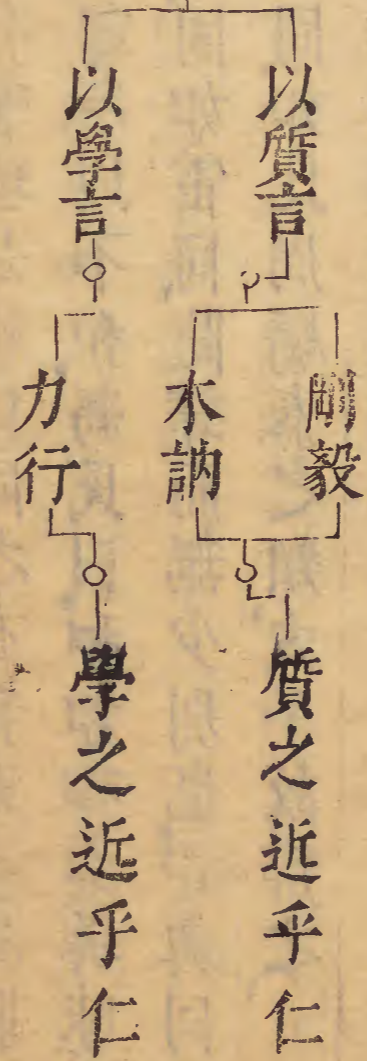 以質言
剛毅
木訥
質之近乎仁
以學言
力行
學之近乎仁